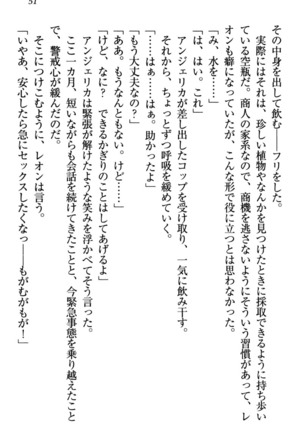 51
その中身を出して飲む――フリをした。
実際にはそれは、珍しい植物やなんかを見つけたときに採取できるように持ち歩い
ている空瓶だ。商人の家系なので、商機を逃さないようにそういう習慣があって、レ
オンも癖になっていたが、こんな形で役に立つとは思わなかった。
「み、水を……」
「は、はい。これ」
アンジェリカが差し出したコップを受け取り、一気に飲み干す。
それから、ちょっとずつ呼吸を緩めていく。
「……はぁ……はぁ。助かったよ」
「もう大丈夫なの？」
「ああ。もうなんともない。けど……」
「けど、なに？　できるかぎりのことはしてあげるよ」
アンジェリカは緊張が解けたような笑みを浮かべてそう言った。
ここ一カ月、短いながらも会話を続けてきたことと、今緊急事態を乗り越えたこと
で、警戒心が緩んだのだ。
そこにつけこむように、レオンは言う。
「いやあ、安心したら急にセックスしたくなっ――もがむもが！」